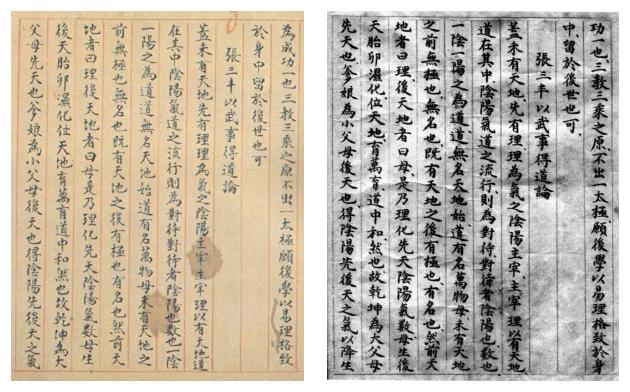 為成功一也三教三乘之原不出一太極願後學以易理格致
於身中留於後世也可
張三丰以武事得道論
蓋未有天地先有理理為氣之陰陽主宰主宰理以有天地道
在其中陰陽氣道之流行則為對待對待者陰陽也數也一陰
一陽之為道道無名天地始道有名萬物母未有天地之
前無極也無名也既有天地之後有極也有名也然前天
地者曰理後天地者曰母是乃理化先天陰陽氣數母生
後天胎卵濕化位天地育萬育道中和然也故乾坤為大
父母先天也爹娘為小父母後天也得陰陽先後天之氣
功一也三教三乘之原不出一太極願後學以易理格致於身
中留於後世也可
張三丰以武事得道論
蓋未有天地先有理理為氣之陰陽主宰主宰理以有天地
道在其中陰陽氣道之流行則為對待對待者陰陽也數也
一陰一陽之為道道無名天地始道有名萬物母未有天地
之前無極也無名也既有天地之後有極也有名也然前天
地者曰理後天地者曰母是乃理化先天陰陽氣數母生後
天胎卵濕化位天地育萬育道中和然也故乾坤為大父母
先天也爹娘為小父母後天也得陰陽先後天之氣以降生